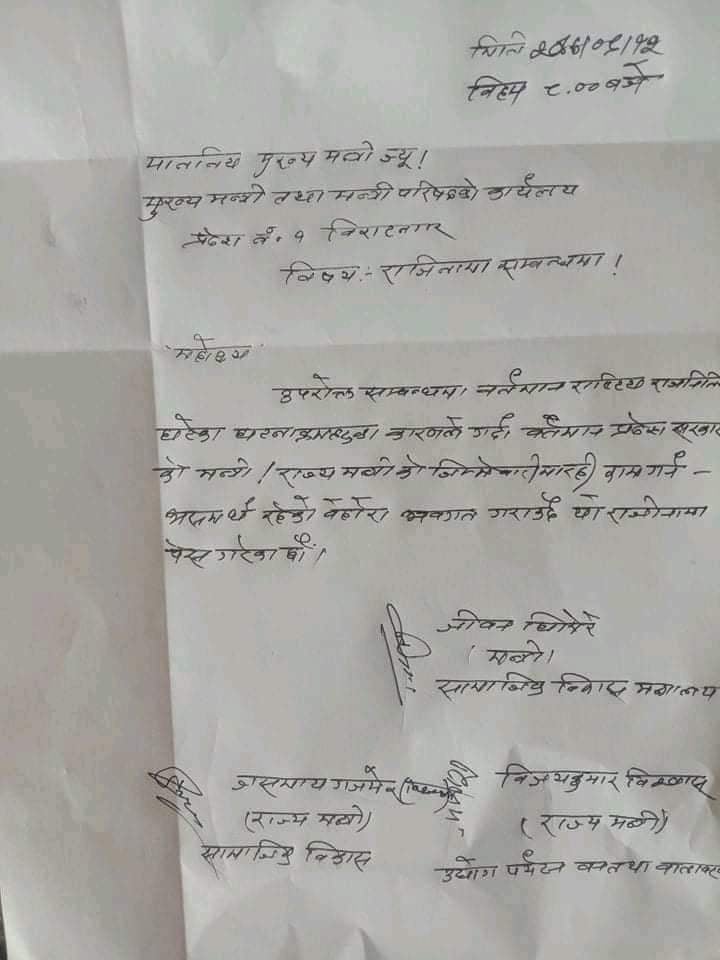 मिति २०७७/०९/१२
बिहान ८.०० बजे
माननिय मुख्य मन्त्री ज्यू!
मुख्य मन्त्री तथा मन्त्री परिषदको कार्यलय
प्रदेश नं. १ विराटनगर
विषय:- राजिनामा सम्बन्धमा!
महोदय
उपरोक्त सम्बन्धमा वर्तमान राष्ट्रिय राजनितिमा
घटेका घटनाक्रमहरुका कारणले गर्दा वर्तमान प्रदेश सरकार
को मन्त्री/राज्य मन्त्री को जिम्मेवारीमा रही काम गर्न -
असमर्थ रहेको बेहोरा अवगत गराउदै यो राजीनामा
पेस गरेका छौं।
जीवन घिमिरे
(मन्त्री)
सामाजिक विकास मन्त्रालय
जसमाया गजमेर
(राज्य मन्त्री)
सामाजिक विकास
विजयकुमार विश्वास
(राज्य मन्त्री)
उद्योग पर्यटन वन तथा वातावरण